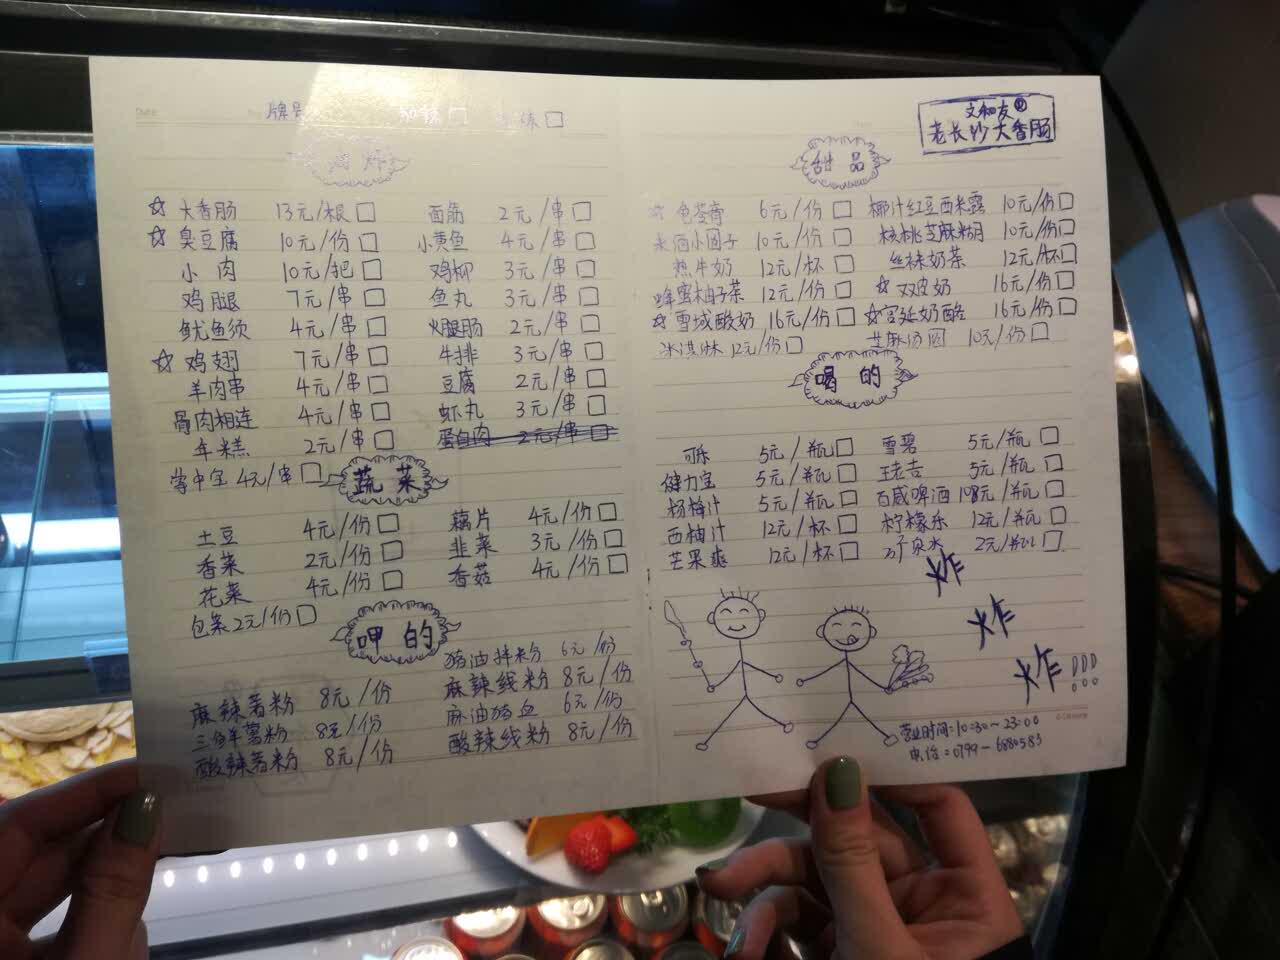 牌号
加辣□
□
文和友®
老长沙大香肠
油炸
☆大香肠 13元/根□ 面筋 2元/串□
☆臭豆腐 10元/份□ 小黄鱼 4元/串□
小肉 10元/把□ 鸡柳 3元/串□
鸡腿 7元/串□ 鱼丸 3元/串□
鱿鱼须 4元/串□ 火腿肠 2元/串□
☆鸡翅 7元/串□ 牛排 3元/串□
羊肉串 4元/串□ 豆腐 2元/串□
骨肉相连 4元/串□ 虾丸 3元/串□
年糕 2元/串□ 蛋白肉 2元/串□
掌中宝 4元/串□
蔬菜
土豆 4元/份□ 藕片 4元/份□
香菜 2元/份□ 韭菜 3元/份□
花菜 4元/份□ 香菇 4元/份□
包菜 2元/份□
呷的
猪油拌粉 6元/份
麻辣薯粉 8元/份 麻辣线粉 8元/份
三鲜薯粉 8元/份 麻油猪血 6元/份
酸辣薯粉 8元/份 酸辣线粉 8元/份
甜品
☆龟苓膏 6元/份□ 椰汁红豆西米露 10元/份□
米酒小圆子 10元/份□ 核桃芝麻糊 10元/份□
热牛奶 12元/杯□ 丝袜奶茶 12元/杯□
蜂蜜柚子茶 12元/份□ ☆双皮奶 16元/份□
☆雪域酸奶 16元/份□ ☆宫廷奶酪 16元/份□
冰淇淋 12元/份□ 芝麻汤圆 10元/份□
喝的
可乐 5元/瓶□ 雪碧 5元/瓶□
健力宝 5元/瓶□ 王老吉 5元/瓶□
杨梅汁 5元/瓶□ 百威啤酒 108元/瓶□
西柚汁 12元/杯□ 柠檬乐 12元/瓶□
芒果爽 12元/杯□ 矿泉水 2元/瓶□
炸
炸
炸!!!
营业时间:10:30~23:00
电话:0799-6880583